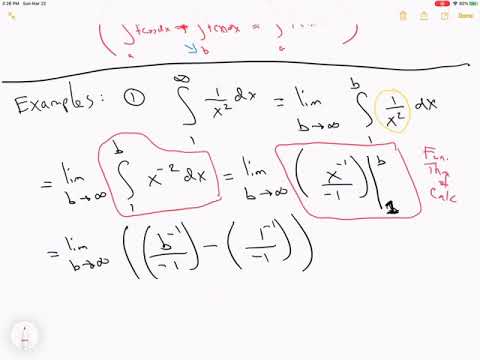 2:28 PM Sun Mar 22 92%
Done
( ∫_a f(x)dx + ∫_b f(x)dx = ∫_a )
Examples: ① ∫_1^∞ 1/x² dx = lim_{b→∞} ∫_1^b 1/x² dx
= lim_{b→∞} ∫_1^b x^{-2} dx = lim_{b→∞} ( x^{-1}/-1 ) |_1^b Fun. Thm of Calc
= lim_{b→∞} ( ( b^{-1}/-1 ) - ( 1^{-1}/-1 ) )